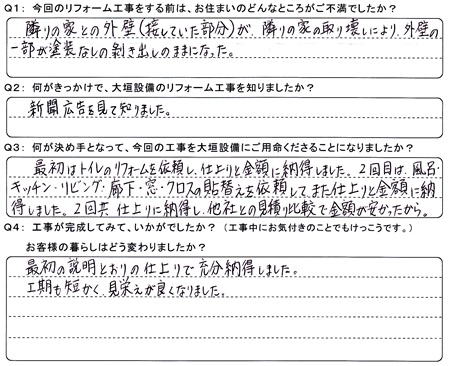 Q1：今回のリフォーム工事をする前は、お住まいのどんなところがご不満でしたか？
隣りの家との外壁(接していた部分)が、隣りの家の取り壊しにより、外壁の
一部が塗装なしの剥き出しのままになった。
Q2：何がきっかけで、大垣設備のリフォーム工事を知りましたか？
新聞広告を見て知りました。
Q3：何が決め手となって、今回の工事を大垣設備にご用命くださることになりましたか？
最初はトイレのリフォームを依頼し、仕上りと金額に納得しました。2回目は、風呂・
キッチン・リビング・廊下・窓・クロスの貼替えを依頼してまた仕上りと金額に納
得しました。2回共仕上りに納得し、他社との見積り比較で金額が安かったから。
Q4：工事が完成してみて、いかがでしたか？（工事中にお気付きのことでもけっこうです。）
お客様の暮らしはどう変わりましたか？
最初の説明とおりの仕上りで充分納得しました。
工期も短かく、見栄えが良くなりました。